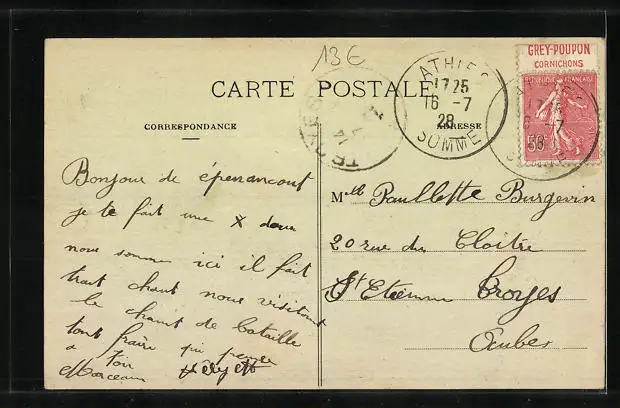 13€
CARTE POSTALE
CORRESPONDANCE
ADRESSE
ATHIES
1725
16 -7
28
SOMME
GREY-POUPON
CORNICHONS
REPUBLIQUE FRANÇAISE
50
Bonjour de épenancourt
je te fait une X deux
nous somme ici il fait
chaut nous visitons
le chant de bataille
ton frère qui pense
a toi
Marceau
Mlle Paullette Burgevin
20 rue du Cloitre
St Etienne Troyes
Aube